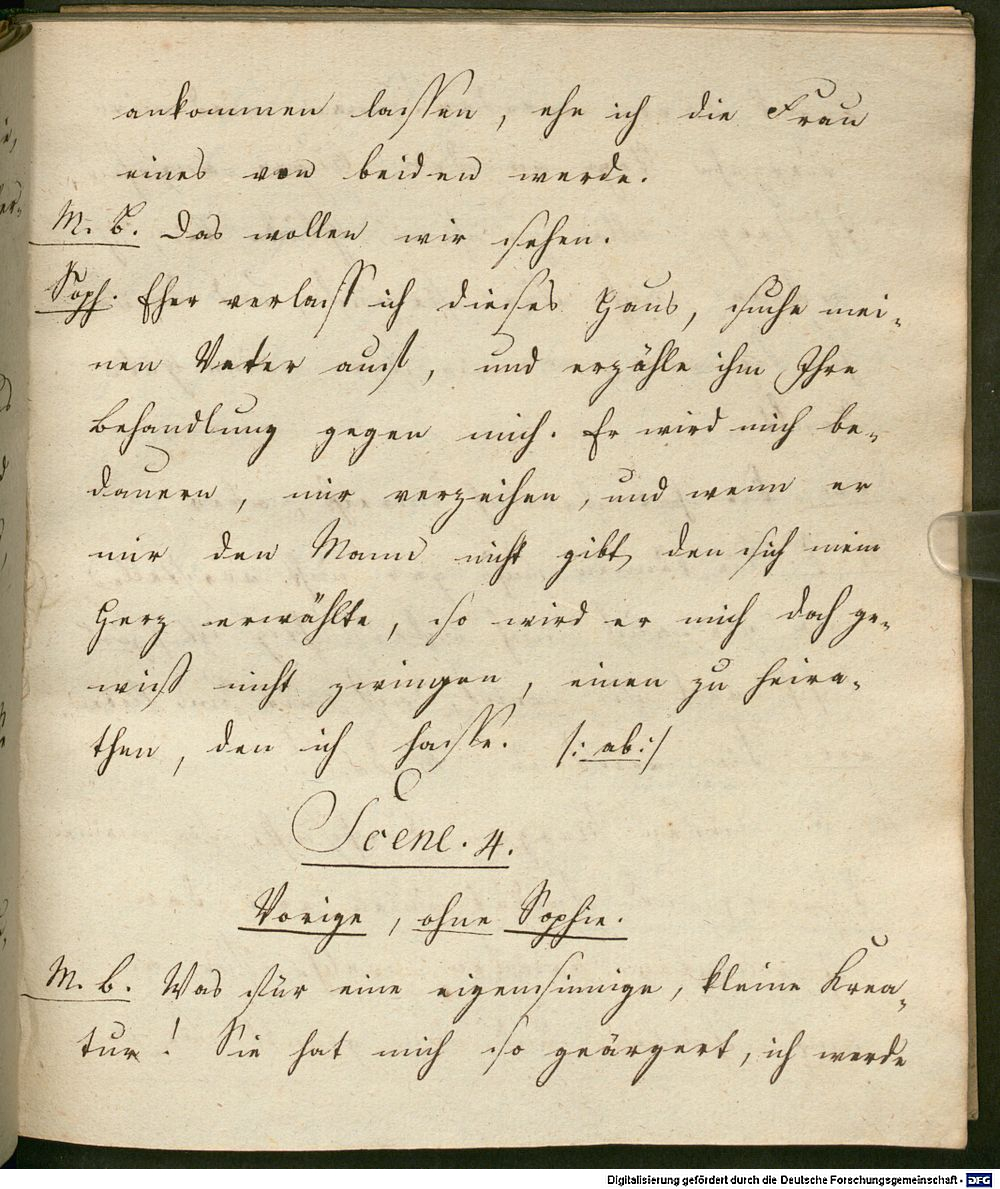 ankommen lassen, ehe ich die Frau
eines von beiden werde.
M. B. Das wollen wir sehen.
Soph. Eher verlass ich dieses Haus, suche mei-
nen Vater auf, und erzähle ihm Ihre
Behandlung gegen mich. Er wird mich be-
dauern, mir verzeihen, und wenn er
mir den Mann nicht gibt, den sich mein
Herz erwählte, so wird er mich doch ge-
wiß nicht zwingen, einen zu heira-
then, den ich hasse. /: ab :/
Scene. 4.
Vorige, ohne Sophie.
M. B. Was für eine eigensinnige, kleine Krea-
tur! Sie hat mich so geärgert, ich werde
Digitalisierung gefördert durch die Deutsche Forschungsgemeinschaft - DFG